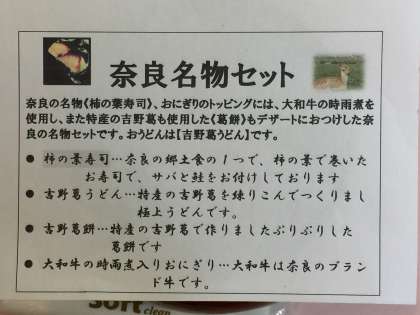 奈良名物セット
奈良の名物《柿の葉寿司》、おにぎりのトッピングには、大和牛の時雨煮を
使用し、また特産の吉野葛も使用した《葛餅》もデザートにおつけした奈
良の名物セットです。おうどんは【吉野葛うどん】です。
● 柿の葉寿司…奈良の郷土食の1つで、柿の葉で巻いた
お寿司で、サバと鮭をお付けしております
● 吉野葛うどん…特産の吉野葛を練りこんでつくりまし
極上うどんです。
● 吉野葛餅…特産の吉野葛で作りましたぷりぷりした
葛餅です
● 大和牛の時雨煮入りおにぎり…大和牛は奈良のブラン
ド牛です。
soft clean